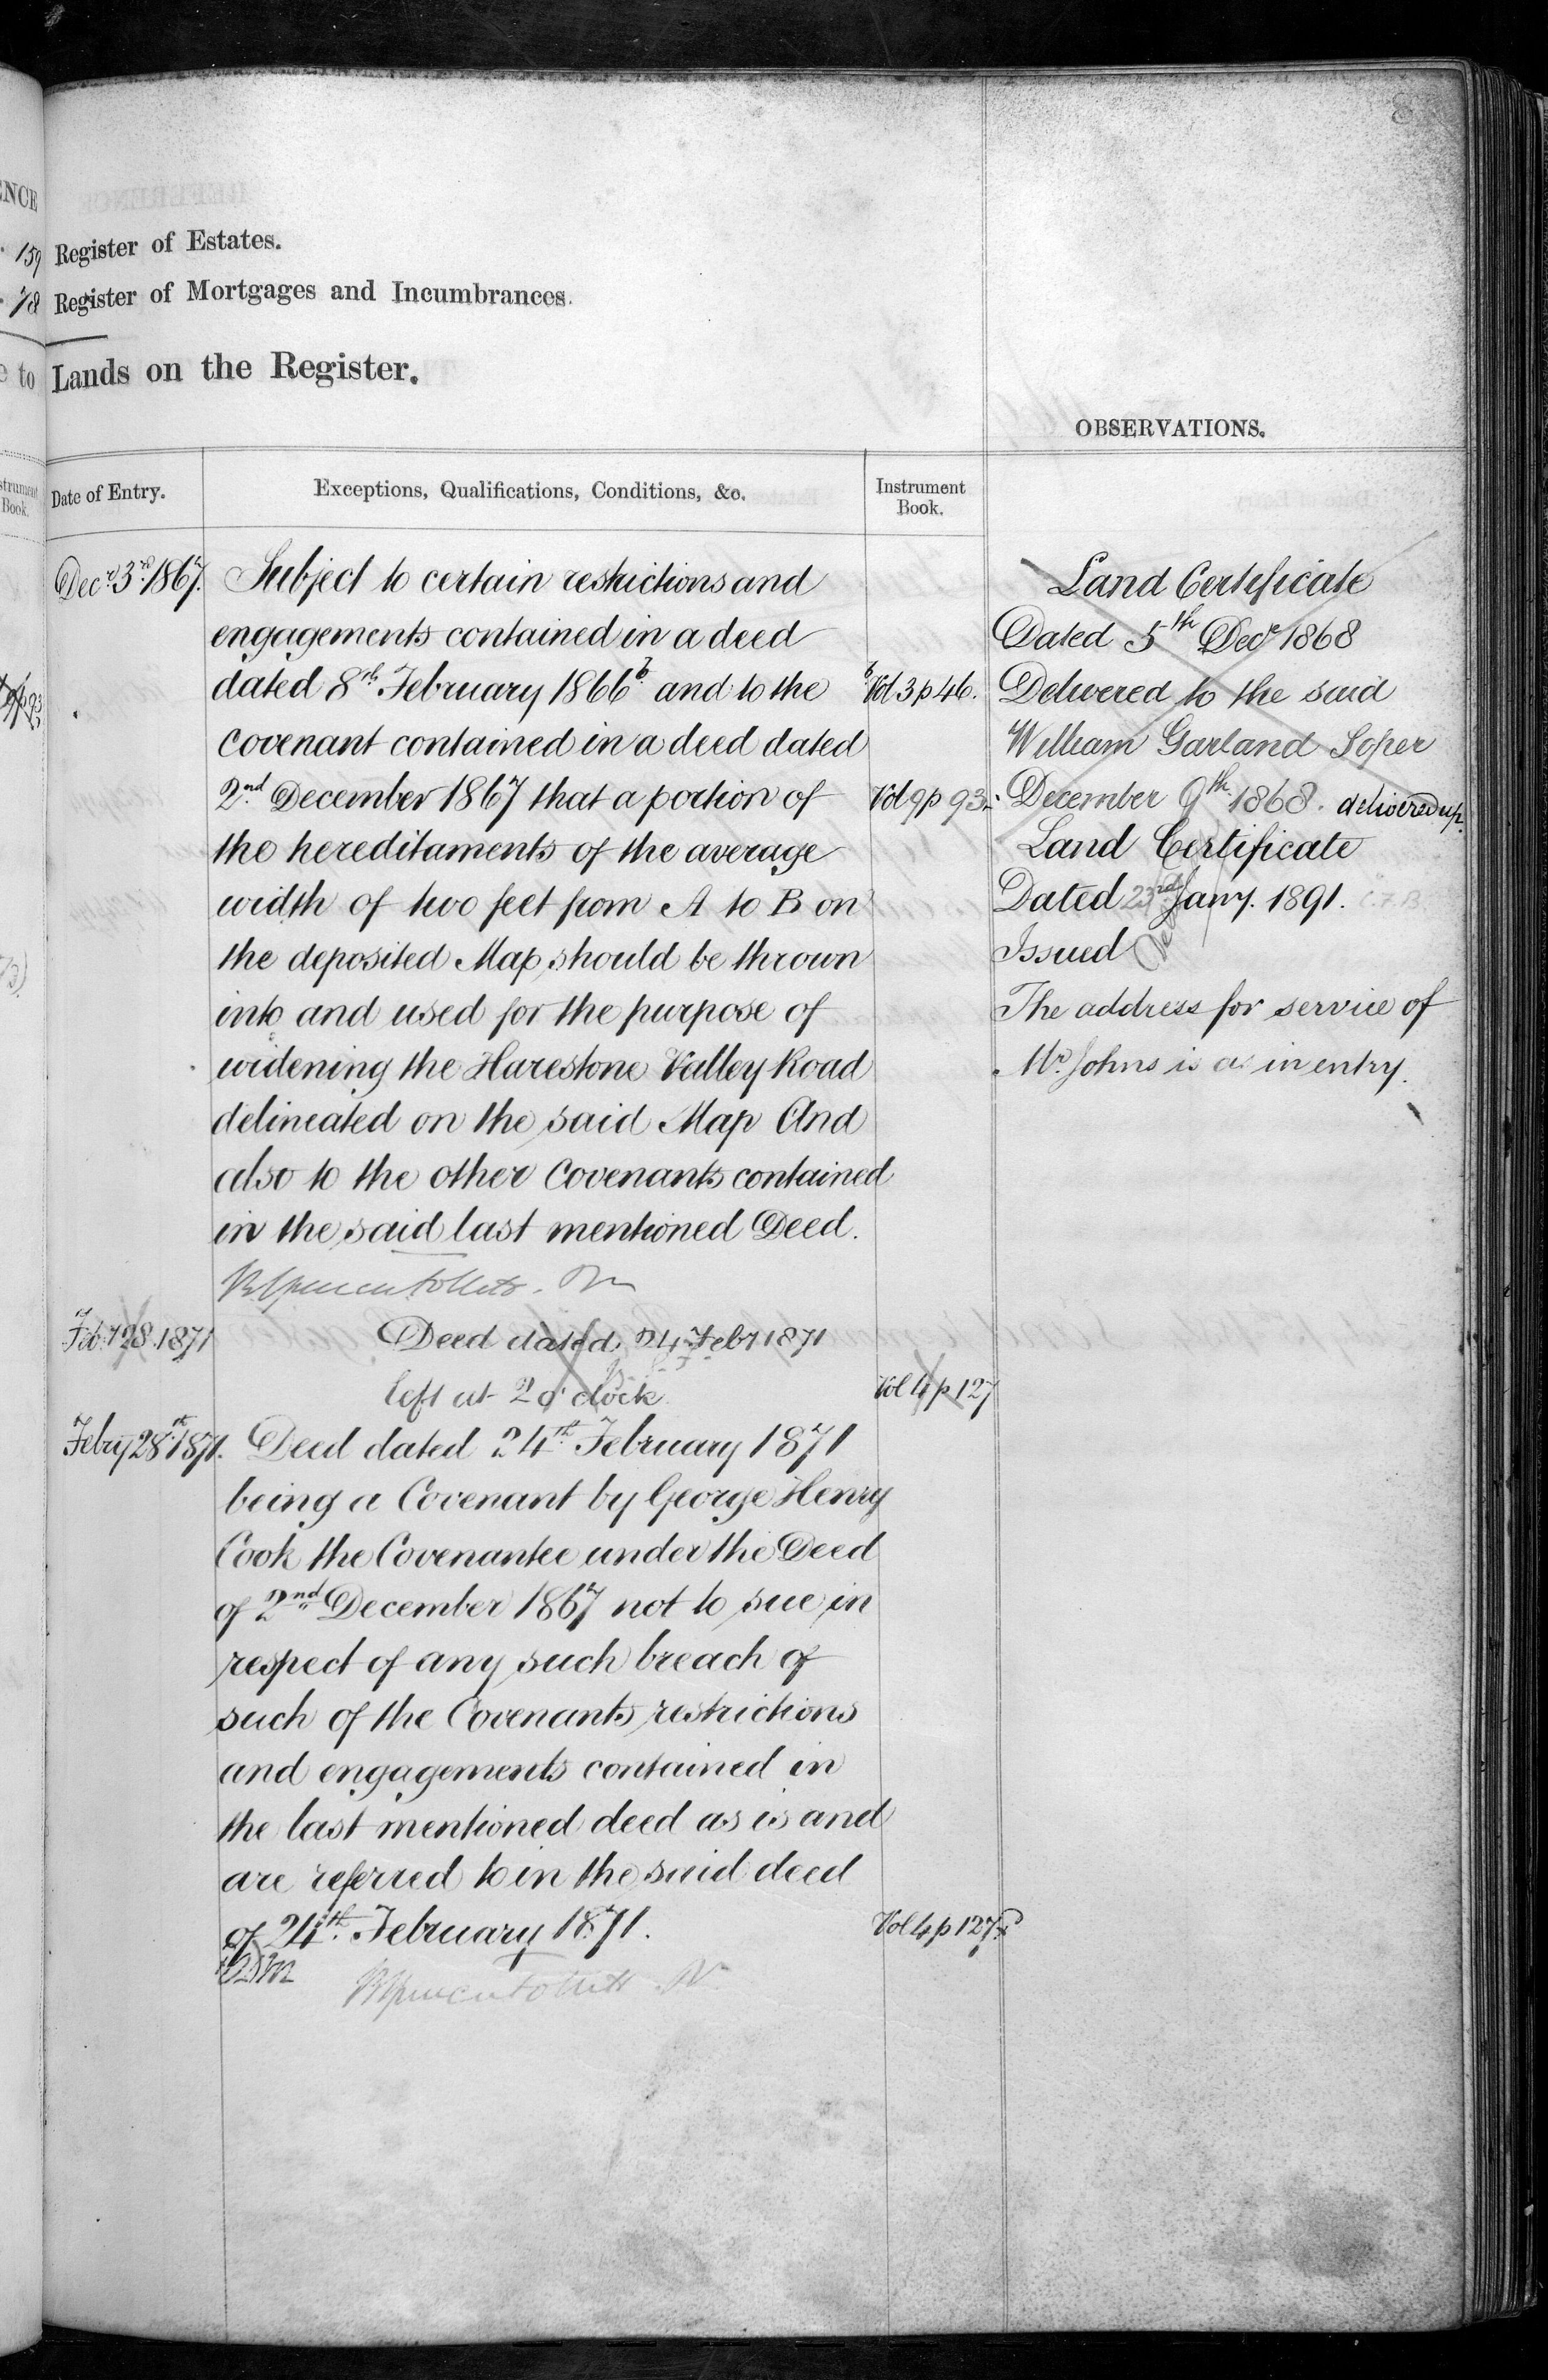 ENCE
159
78
e to
strument
Book.
8
Register of Estates.
Register of Mortgages and Incumbrances.
Lands on the Register.
OBSERVATIONS.
Date of Entry.
Exceptions, Qualifications, Conditions, &c.
Instrument
Book.
Decr. 3rd 1867.
Subject to certain restrictions and
engagements contained in a deed
dated 8th February 1866 b and to the
b Vol 3 p 46.
covenant contained in a deed dated
2nd December 1867 that a portion of
Vol 9 p 93
the hereditaments of the average
width of two feet from A to B on
the deposited Map should be thrown
into and used for the purpose of
widening the Harestone Valley Road
delineated on the said Map And
also to the other Covenants contained
in the said last mentioned Deed.
Feby 28. 1871
Deed dated 24 Feby 1871
left at 2 o'clock
Vol 4 p 127
Febry 28th 1871.
Deed dated 24th February 1871
being a Covenant by George Henry
Cook the Covenantee under the Deed
of 2nd December 1867 not to sue in
respect of any such breach of
such of the Covenants restrictions
and engagements contained in
the last mentioned deed as is and
are referred to in the said deed
of 24th February 1871.
Vol 4 p 127
Land Certificate
Dated 5th Decr 1868
Delivered to the said
William Garland Soper
December 9th 1868. delivered up.
Land Certificate
Dated 23rd Jany. 1891.
Issued
The address for service of
Mr. Johns is as in entry.